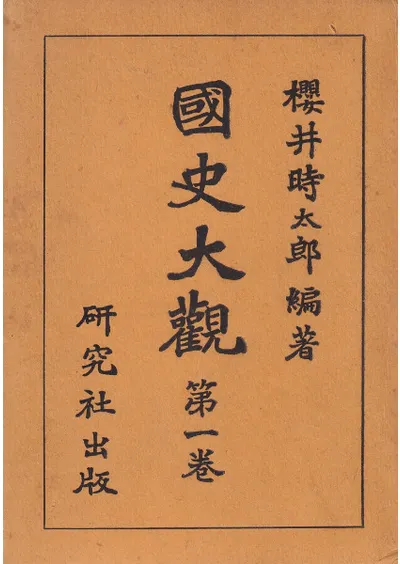 櫻井時太郎編著
國史大觀 第一卷
研究社出版